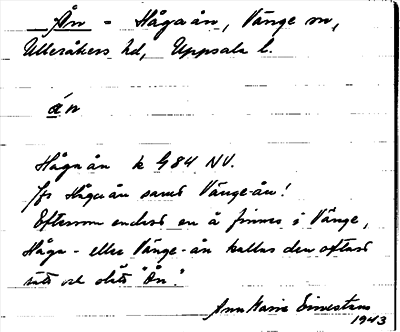 Ån - Håga ån, Vänge sn,
Ulleråkers hd, Uppsala l.
án
Håga ån k 984 NV.
Jfr Håga ån samt Vänge-ån!
Eftersom endast en å finnes i Vänge,
Håga- eller Vänge-ån kallas den oftast
rätt och slätt "Ån".
Ann Marie
1943